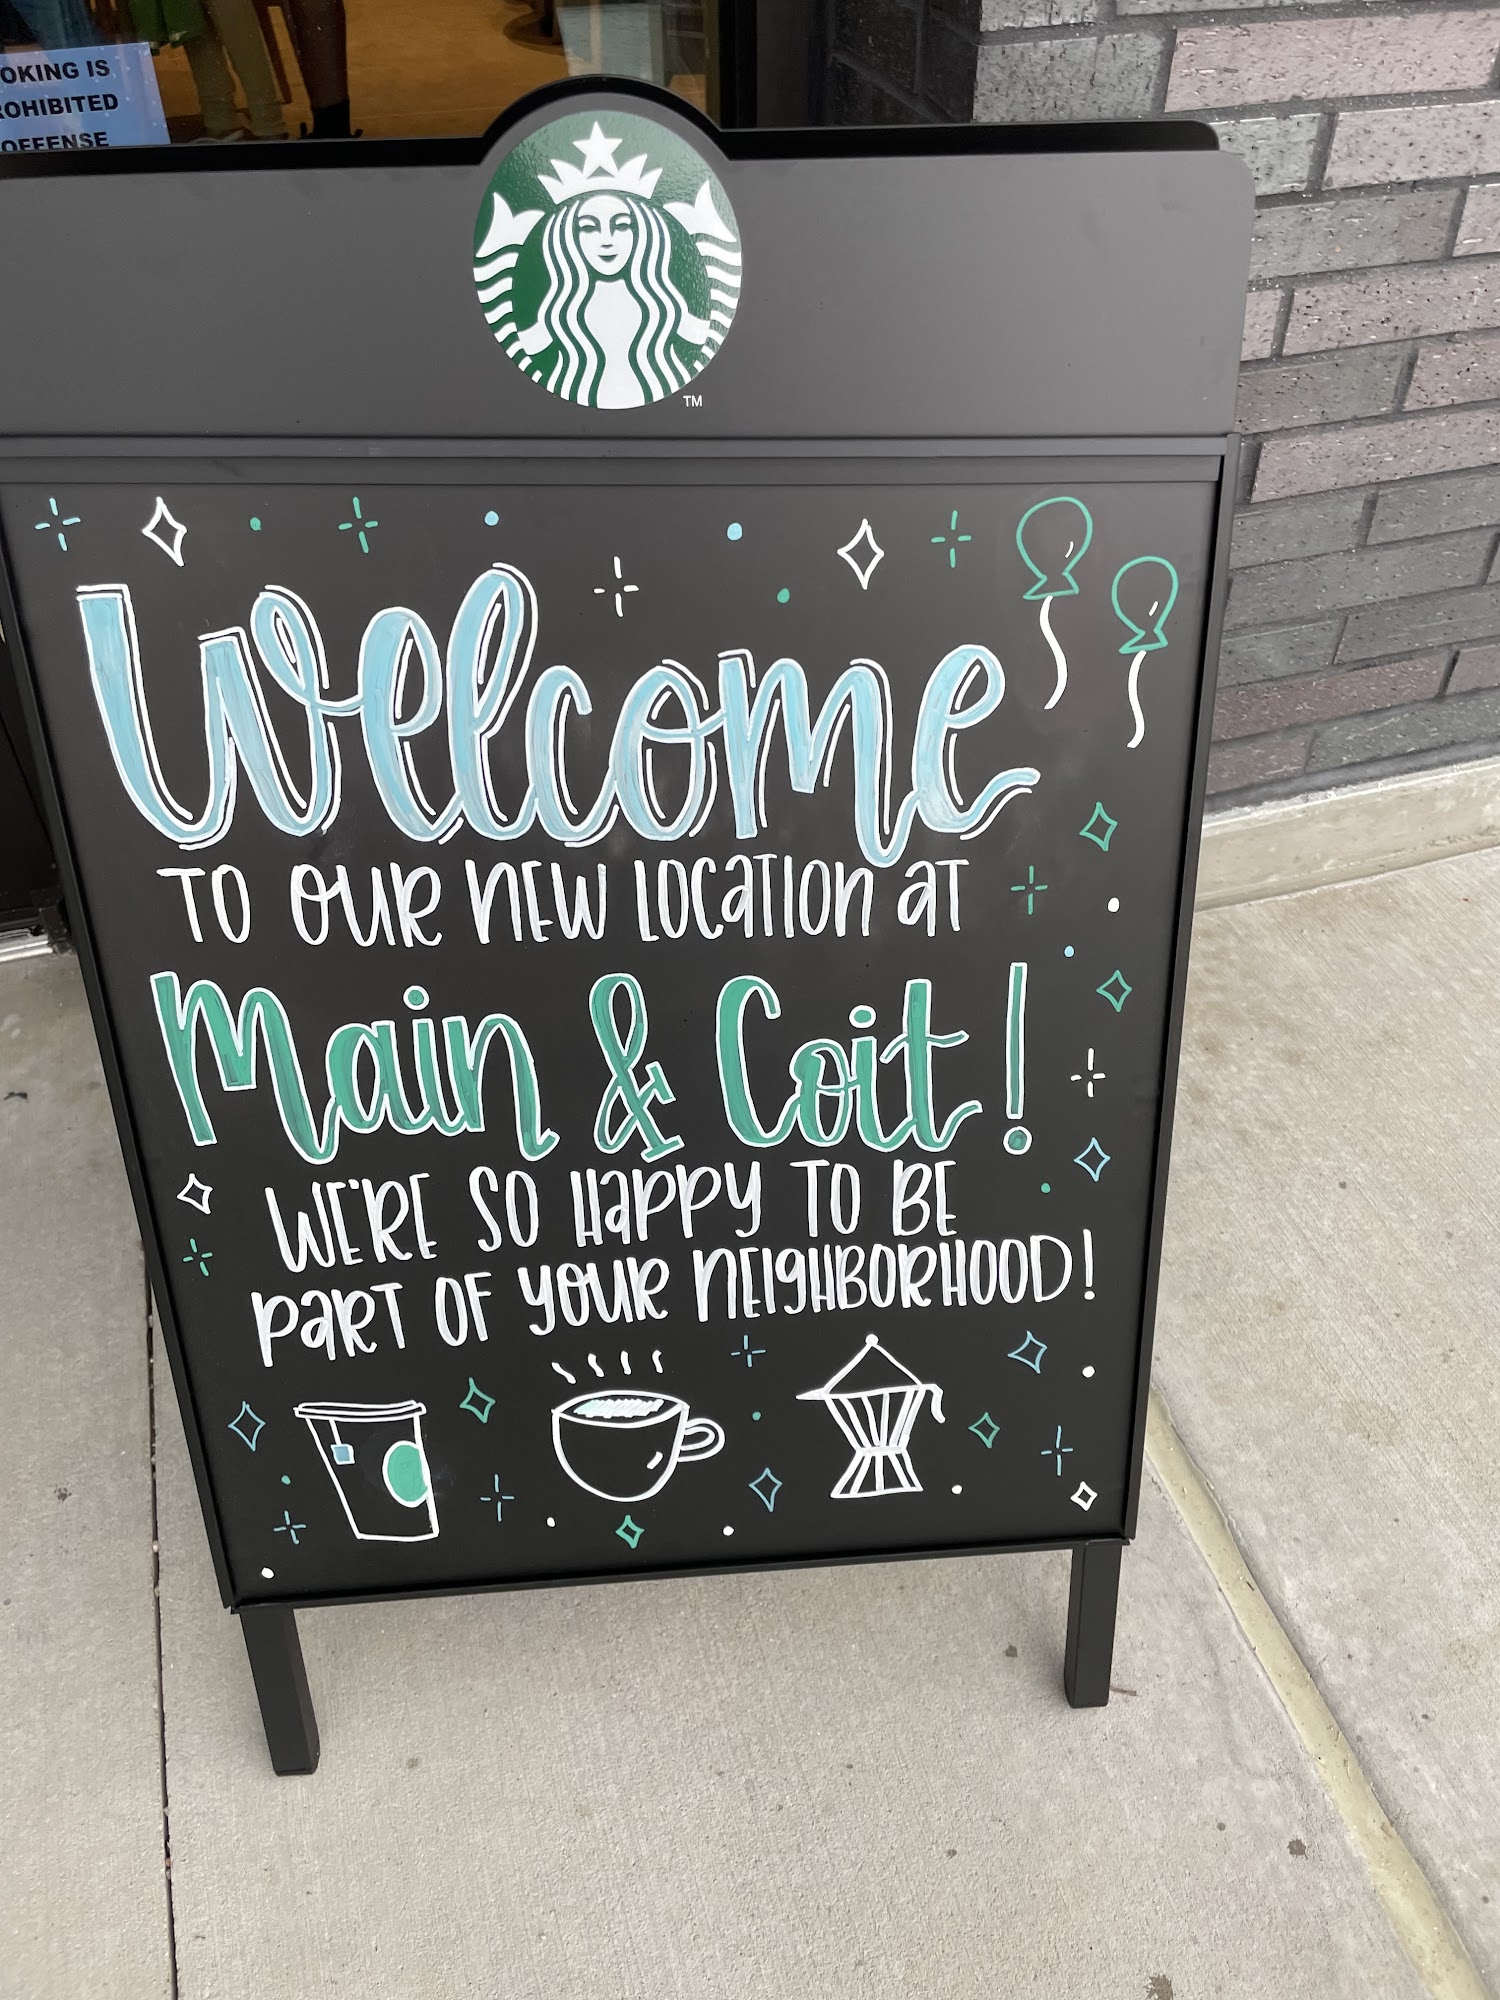 OKING IS
ROHIBITED
OFFENSE
TM
Welcome
TO OUR NEW LOCATION AT
Main & Coit!
WE'RE SO HAPPY TO BE
PART OF YOUR NEIGHBORHOOD!